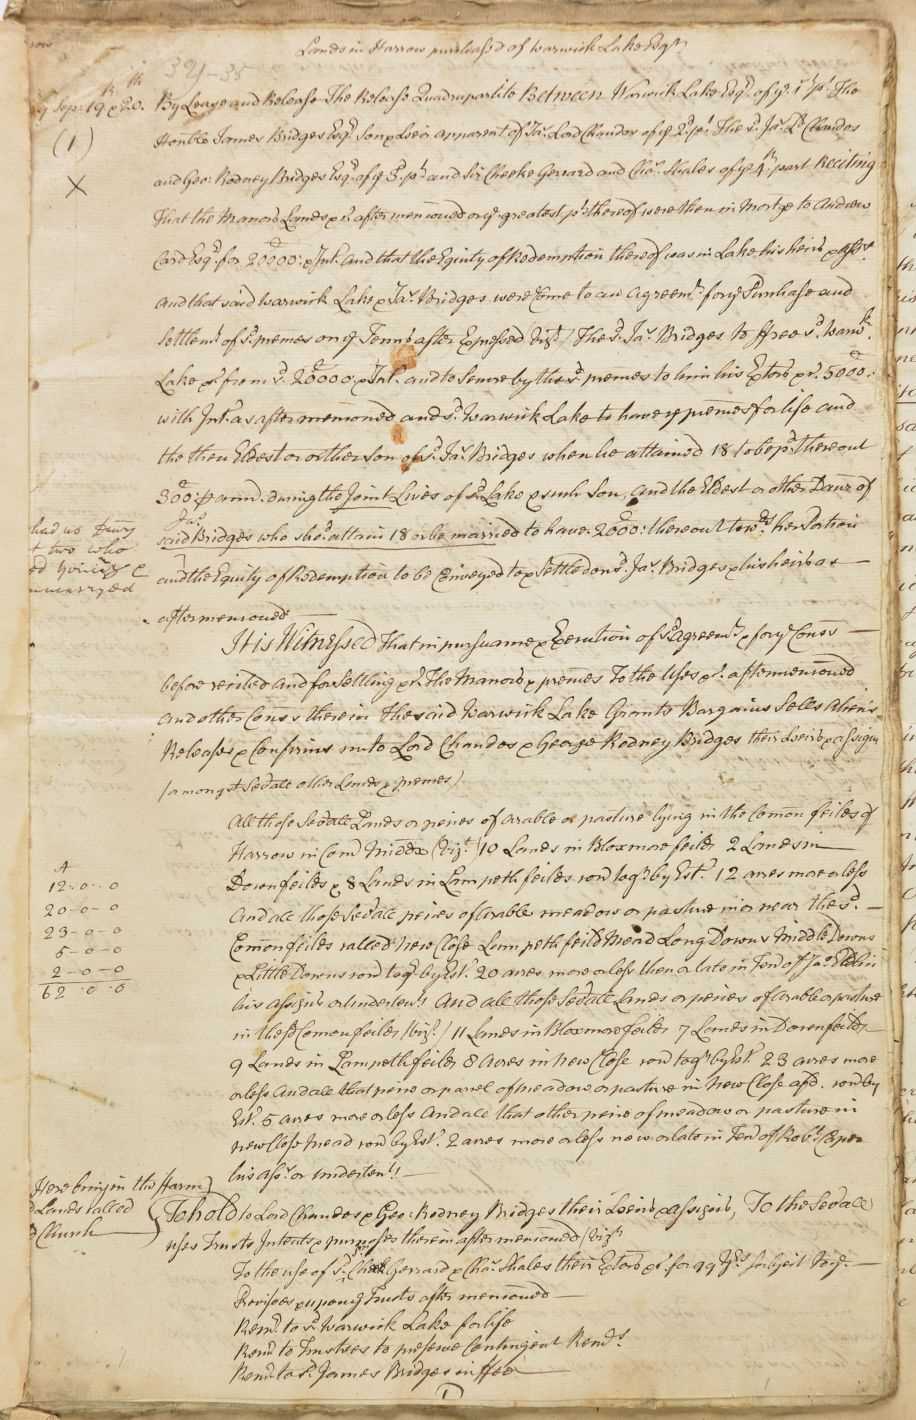 Lands in Harrow purchased of Warwick Lake Esqr.
34-35
Sep. 19 & 20. By Lease and Release The Release Quadrupartite Between Warwick Lake Esqr. of ye. 1st. pt. The
(1)
Honble James Bridges Esqr. Son & Heir apparent of Ja: Lord Chandos of ye 2d. pt. The sd. Ja: Ld. Chandos
X
and Geo: Rodney Bridges Esqr. of ye 3d. pt. and Sir Cheeke Gerrard and Chas. Shales of ye 4th. part Reciting
That the Manors Lands &c. after mencioned or ye. greatest pt. thereof were then in Mortge to Andrew
Card Esqr. for 20000: & Int. And that the Equity of Redemption thereof was in Lake his heirs &
And that said Warwick Lake & Ja: Bridges were come to an Agreemt. for ye Purchase and
Settlemt. of sd. premes on ye Terms after Expressed Vizt./ The sd. Ja: Bridges to ffree sd. Warwk.
Lake &c. from sd. 20000: & Int. and to Secure by the sd. premes to him his Exõrs &c. 5000:
with Int. as after mencioned and sd. Warwick Lake to have ye premes for life and
the then Eldest or other Son of sd. Ja: Bridges when he attained 18 to be pd. thereout
300: p ann. during the Joint Lives of sd. Lake & such Son, And the Eldest or other Daur of
Jas.
said Bridges who shod. attain 18 or be married to have 2000: thereout towds. her Portion
had no
two who
And the Equity of Redemption to be Conveyed to & Settled on sd. Ja: Bridges & his heirs as
after mencioned
It is Witnessed That in pursuance & Execution of sd. Agreemt. & for ye. Cons
before recited And for Settling &c. The Manors & premes To the Uses &c. aftermencioned
And other Cons therein The said Warwick Lake Grants Bargains Sells Aliens
Releases & Confirms unto Lord Chandos & George Rodney Bridges their heirs & assigns
(amongst Sevall other Lands & premes)
All those Sevall Lands or peices of arable or pasture lying in the Common feilds of
Harrow in Com Middx (Vizt.) 10 Lands in Bloxmore feilds 2 Lands in
A
12-0-0
Down feilds & 8 Lands in Lampeth feilds cont. togr. by Est. 12 acres more or less
20-0-0
And all those Sevall peices of arable meadow or pasture in or near the sd.
23-0-0
Comon feilds called New Close Lampeth feild Mead Long Downs Middle Downs
5-0-0
& Little Downs cont. togr. by Est. 20 acres more or less then or late in Ten of Jas.
2-0-0
his assigns or undertents. And all those Sevall Lands or peices of arable or pasture
62-0-0
in these Comon feilds (vizt.) 11 Lands in Bloxmore feilds 7 Lands in Down feilds
9 Lands in Lampeth feilds 8 Acres in New Close cont. togr. by Est. 23 acres more
or less And all that peice or parcel of meadow or pasture in New Close afsd. cont. by
Est. 5 acres more or less And all that other peice of meadow or pasture in
New Close Mead cont. by Est. 2 acres more or less now or late in Ten of Robt.
his ass. or undertents.
Here bring in the ffarm
Lands called
Church
To hold to Lord Chandos & Geo: Rodney Bridges their heirs & assigns, To the Sevall
uses Trusts Intents & purposes therein after mencioned (vizt.
To the use of Sr. Cheek Gerrard & Chas. Shales their Exõrs &c. for 99 yrs.
Provisoes & upon ye Trusts after mencioned
Remr. to sd. Warwick Lake for life
Remr. to Trustees to preserve Contingent Remrs.
Remr. to sd. James Bridges in ffee